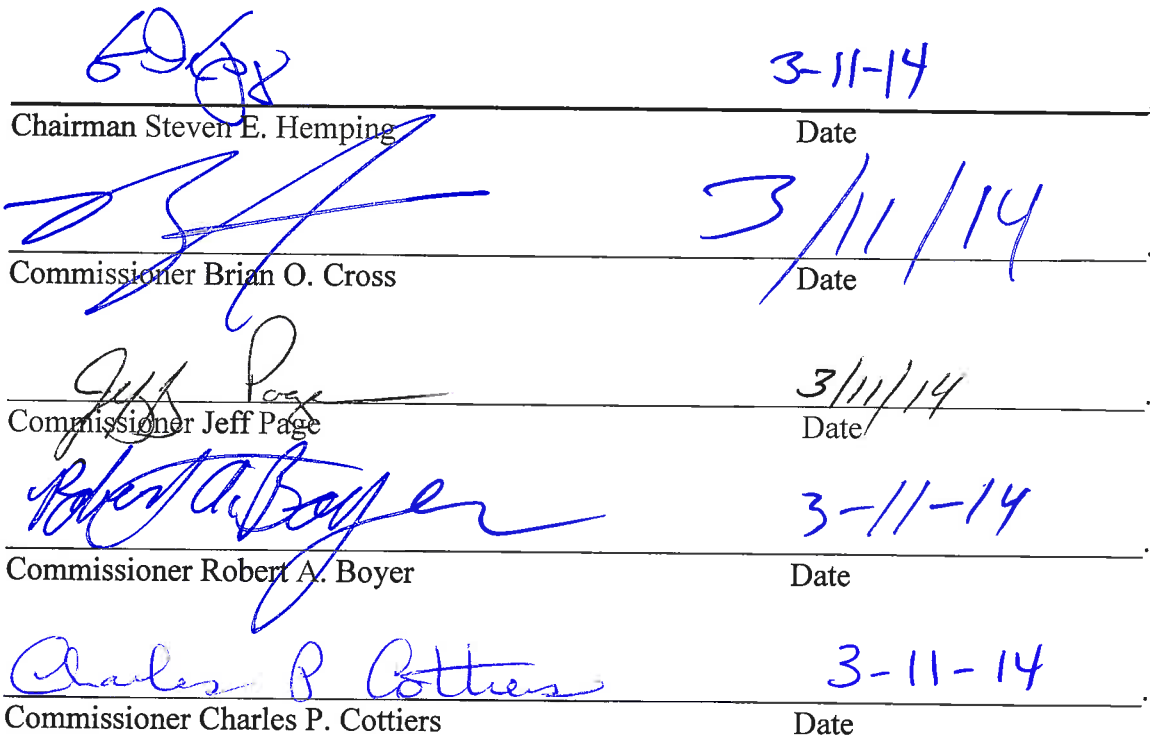 3-11-14
Chairman Steven E. Hemping Date
3/11/14
Commissioner Brian O. Cross Date
Jeff Page 3/11/14
Commissioner Jeff Page Date
Robert A. Boyer 3-11-14
Commissioner Robert A. Boyer Date
Charles P Cottiers 3-11-14
Commissioner Charles P. Cottiers Date